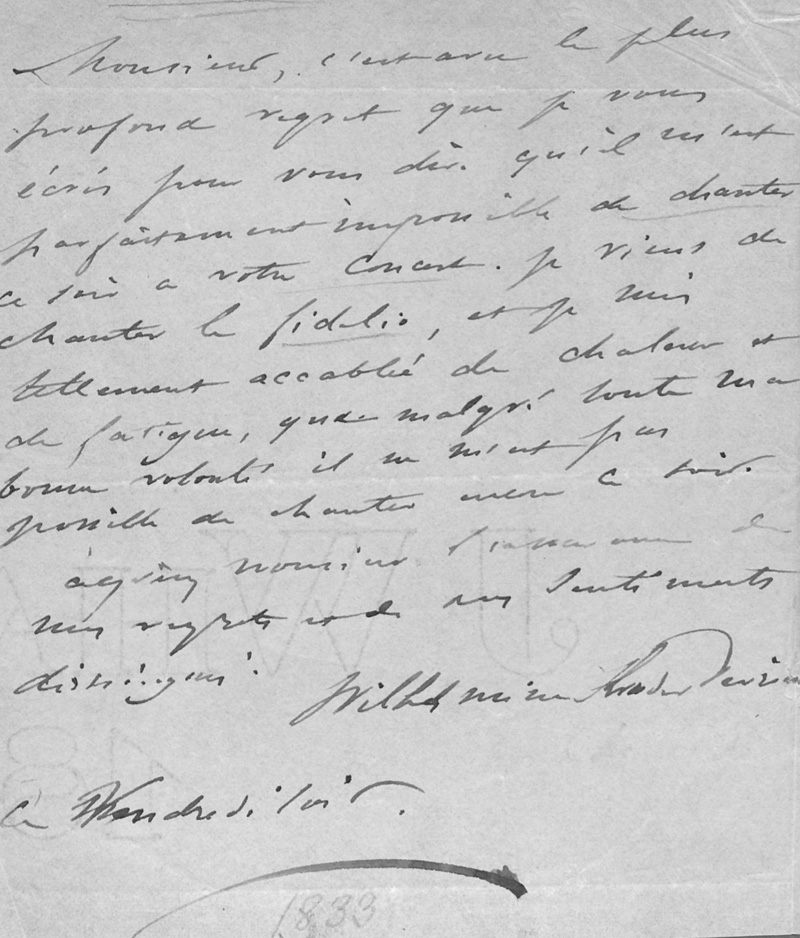 Monsieur, c'est avec le plus
profond regret que je vous
écris pour vous dire qu'il m'est
parfaitement impossible de chanter
ce soir a votre Concert. je viens de
chanter le fidelio, et je suis
tellement accablé de chaleur et
de fatigue, que malgré toute ma
bonne volonté il ne m'est pas
possible de chanter encore ce soir.
agréez monsieur l'assurance de
mes regrets et de mes sentiments
distingués.
Wilhelmine Schroeder Devrient
ce Vendredi soir.
1833